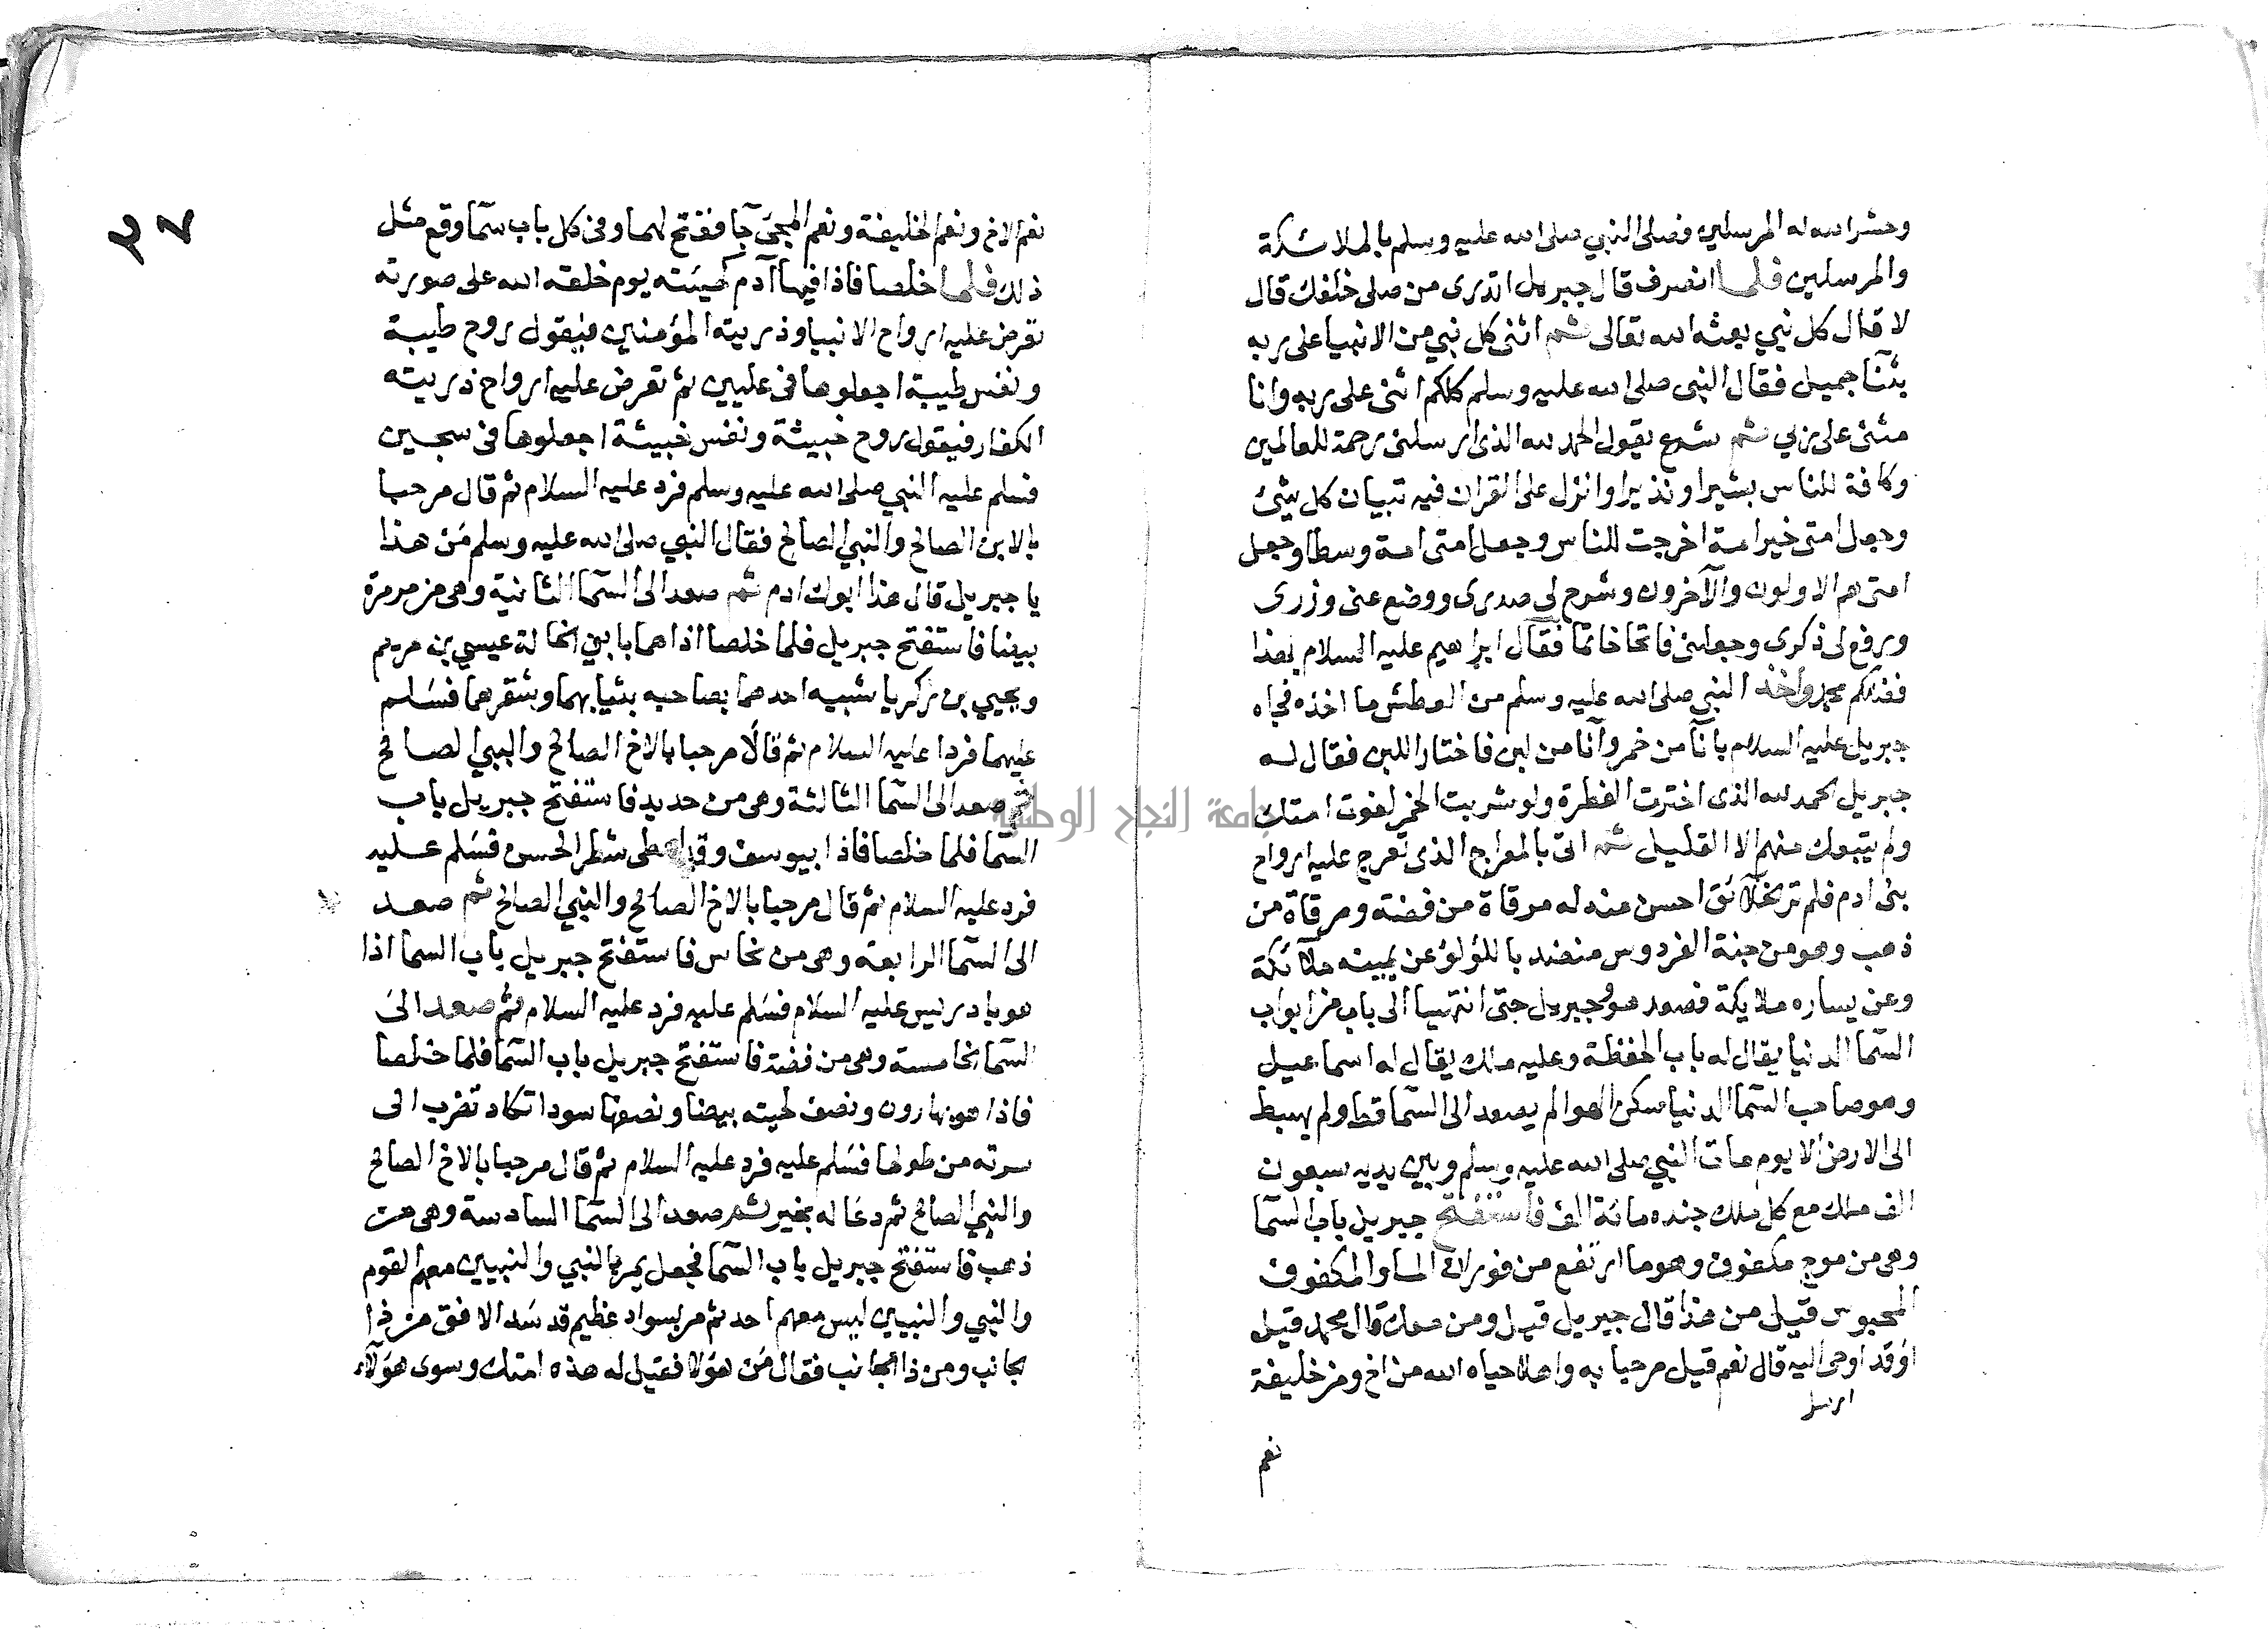 وحشر الله له المرسلين فصلى النبي صلى الله عليه وسلم بالملائكة
والمرسلين فلما انصرف قال جبريل اتدرى من صلى خلفك قال
لا قال كل نبي بعثه الله تعالى ثم اثنى كل نبي من الانبيا على ربه
بثنآ جميل فقال النبي صلى الله عليه وسلم كلكم اثنى على ربه وانا
مثنى على ربي ثم شرع يقول الحمد لله الذى ارسلنى رحمة للعالمين
وكافة للناس بشيرا ونذيرا وانزل على القران فيه تبيان كل شيئ
وجعل امتى خير امة اخرجت للناس وجعل امتى امة وسطا وجعل
امتى هم الاولون والآخرون وشرح لي صدرى ووضع عنى وزرى
ورفع لى ذكرى وجعلنى فاتحا خاتما فقال ابراهيم عليه السلام بهذا
فضلكم محمد واخذ النبي صلى الله عليه وسلم من العطش ما اخذه فجاه
جبريل عليه السلام بانآ من خمر وآنا من لبن فاختار اللبن فقال له
جبريل الحمد لله الذى اخترت الفطرة ولو شربت الخمر لغوت امتك
ولم يتبعك منهم الا القليل ثم اتى بالمعراج الذى تعرج عليه ارواح
بنى ادم فلم تر الخلائق احسن منه له مرقاة من فضة ومرقاة من
ذهب وهو من جنة الفردوس منضد باللؤلؤ عن يمينه ملآئكة
وعن يساره ملايكة فصعد هو وجبريل حتى انتهيا الى باب من ابواب
السمآ الدنيا يقال له باب الحفظة وعليه ملك يقال له اسماعيل
وهو صاحب السمآ الدنيا مسكن الهوا لم يصعد الى السمآ قط ولم يهبط
الى الارض الا يوم مات النبي صلى الله عليه وسلم وبين يديه سبعون
الف ملك مع كل ملك جنده مائة الف فاستفتح جبريل باب السمآ
وهى من موج مكفوف وهو ما ارتفع من فور الما والمكفوف
المحبوس قيل من هذا قال جبريل قيل ومن معك قال محمد قيل
اوقد اوحى اليه قال نعم قيل مرحبا به واهلا حياه الله من اخ ومن خليفة
ارسل
نعم
نعم الاخ ونعم الخليفة ونعم المجئ جآ ففتح لهما وفى كل باب سمآ وقع مثل
ذلك فلما خلصا فاذا فيها آدم كهيئته يوم خلقه الله على صورته
تعرض عليه ارواح الانبيا وذريته المؤمنين فيقول روح طيبة
ونفس طيبة اجعلوها فى عليين ثم تعرض عليه ارواح ذريته
الكفار فيقول روح خبيثة ونفس خبيثة اجعلوها فى سجين
فسلم عليه النبي صلى الله عليه وسلم فرد عليه السلام ثم قال مرحبا
بالابن الصالح والنبي الصالح فقال النبي صلى الله عليه وسلم من هذا
يا جبريل قال هذا ابوك ادم ثم صعد الى السمآ الثانية وهى من مرمرة
بيضا فاستفتح جبريل فلما خلصا اذا هما بابني الخالة عيسي بن مريم
ويحيي بن زكريا شبيه احدهما بصاحبه بثيابهما وشعرهما فسلم
عليهما فردا عليه السلام ثم قالا مرحبا بالاخ الصالح والنبي الصالح
ثم صعد الى السمآ الثالثة وهى من حديد فاستفتح جبريل باب
السمآ فلما خلصا فاذا بيوسف وقد اعطى شطر الحسن فسلم عليه
فرد عليه السلام ثم قال مرحبا بالاخ الصالح والنبي الصالح ثم صعد
الى السمآ الرابعة وهى من نحاس فاستفتح جبريل باب السما اذا
هو بادريس عليه السلام فسلم عليه فرد عليه السلام ثم صعد الى
السمآ الخامسة وهى من فضة فاستفتح جبريل باب السمآ فلما خلصا
فاذا هو بهارون ونصف لحيته بيضا ونصفها سودا تكاد تضرب الى
سرته من طولها فسلم عليه فرد عليه السلام ثم قال مرحبا بالاخ الصالح
والنبي الصالح ثم دعا له بخير ثم صعد الى السمآ السادسة وهى من
ذهب فاستفتح جبريل باب السمآ فجعل يمر بالنبي والنبيين معهم القوم
والنبي والنبيين ليس معهم احد ثم مر بسواد عظيم قد سد الافق من ذا
الجانب ومن ذا الجانب فقال من هؤلا فقيل له هذه امتك وسوى هؤلآء
جامعة النجاح الوطنية